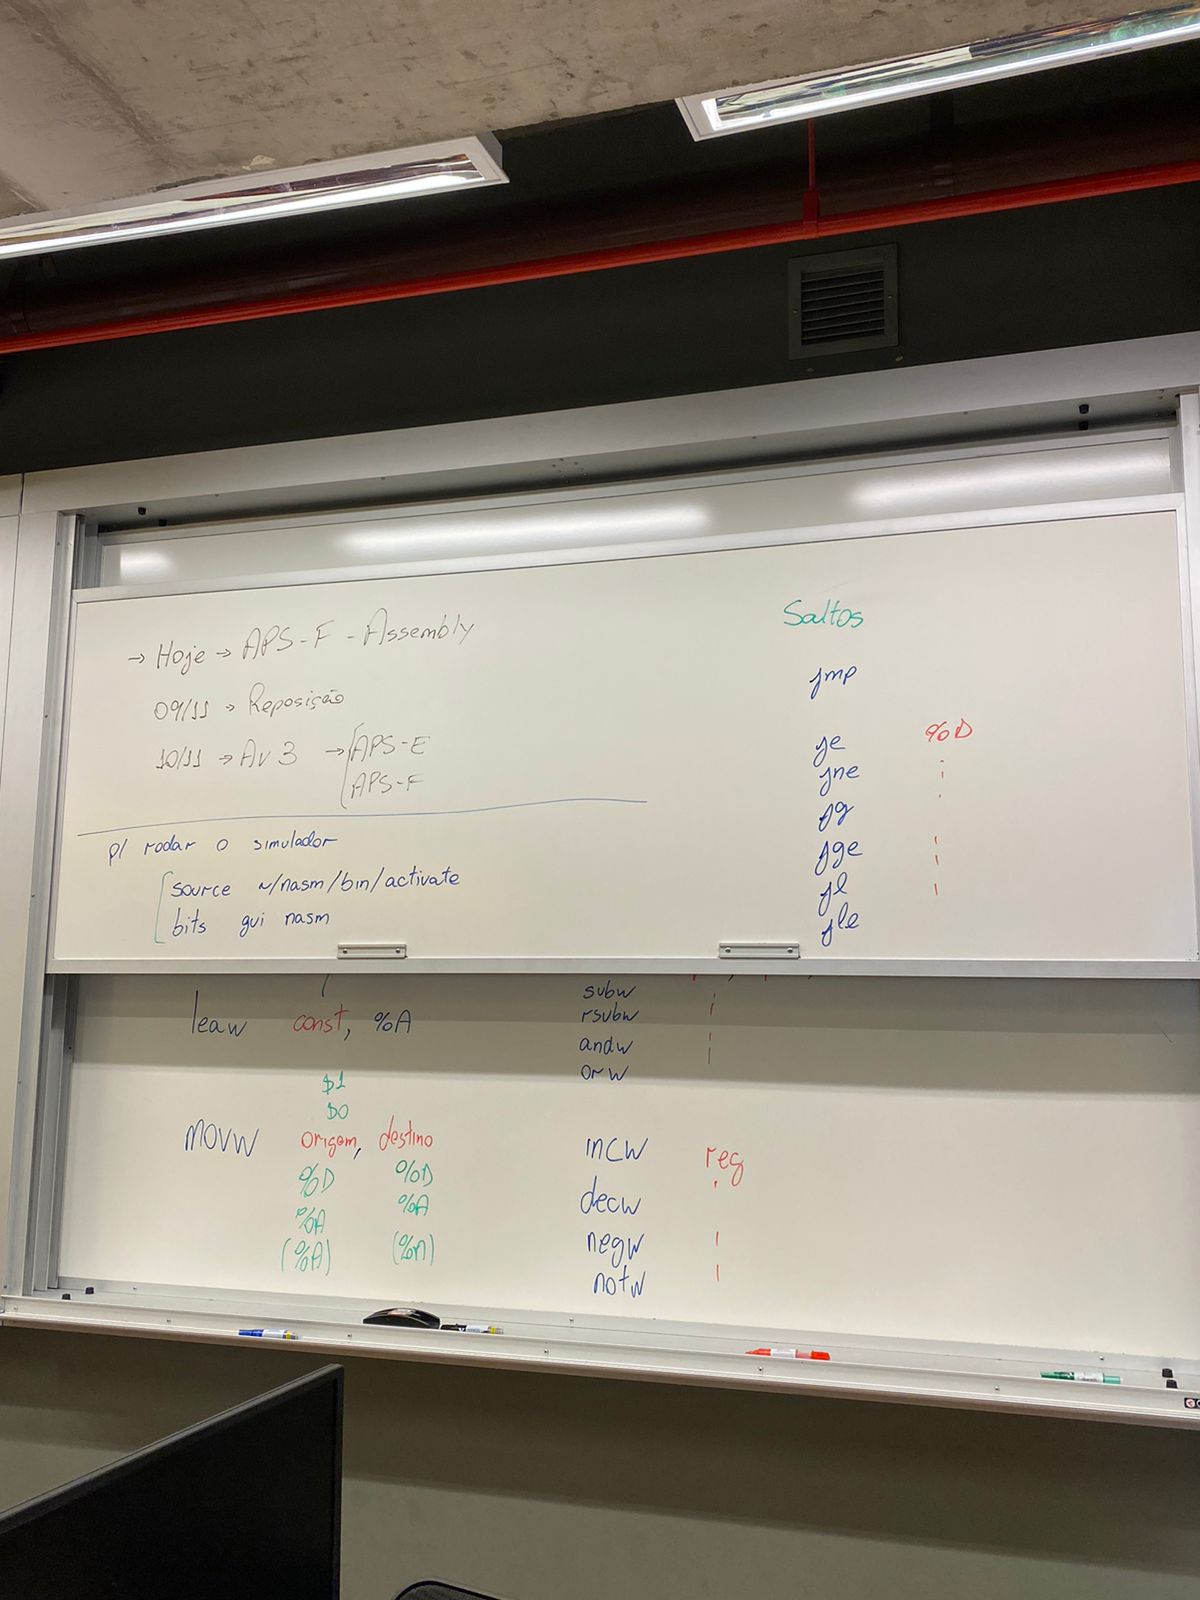 → Hoje → APS-F - Assembly
09/11 → Reposição
10/11 → Av 3 → APS-E
APS-F
p/ rodar o simulador
source ~/nasm/bin/activate
bits gui nasm
Saltos
jmp
je %D
jne
jg
jge
jl
jle
leaw const, %A
$1
$0
movw origem, destino
%D %D
%A %A
(%A) (%A)
subw
rsubw
andw
orw
incw reg
decw
negw
notw